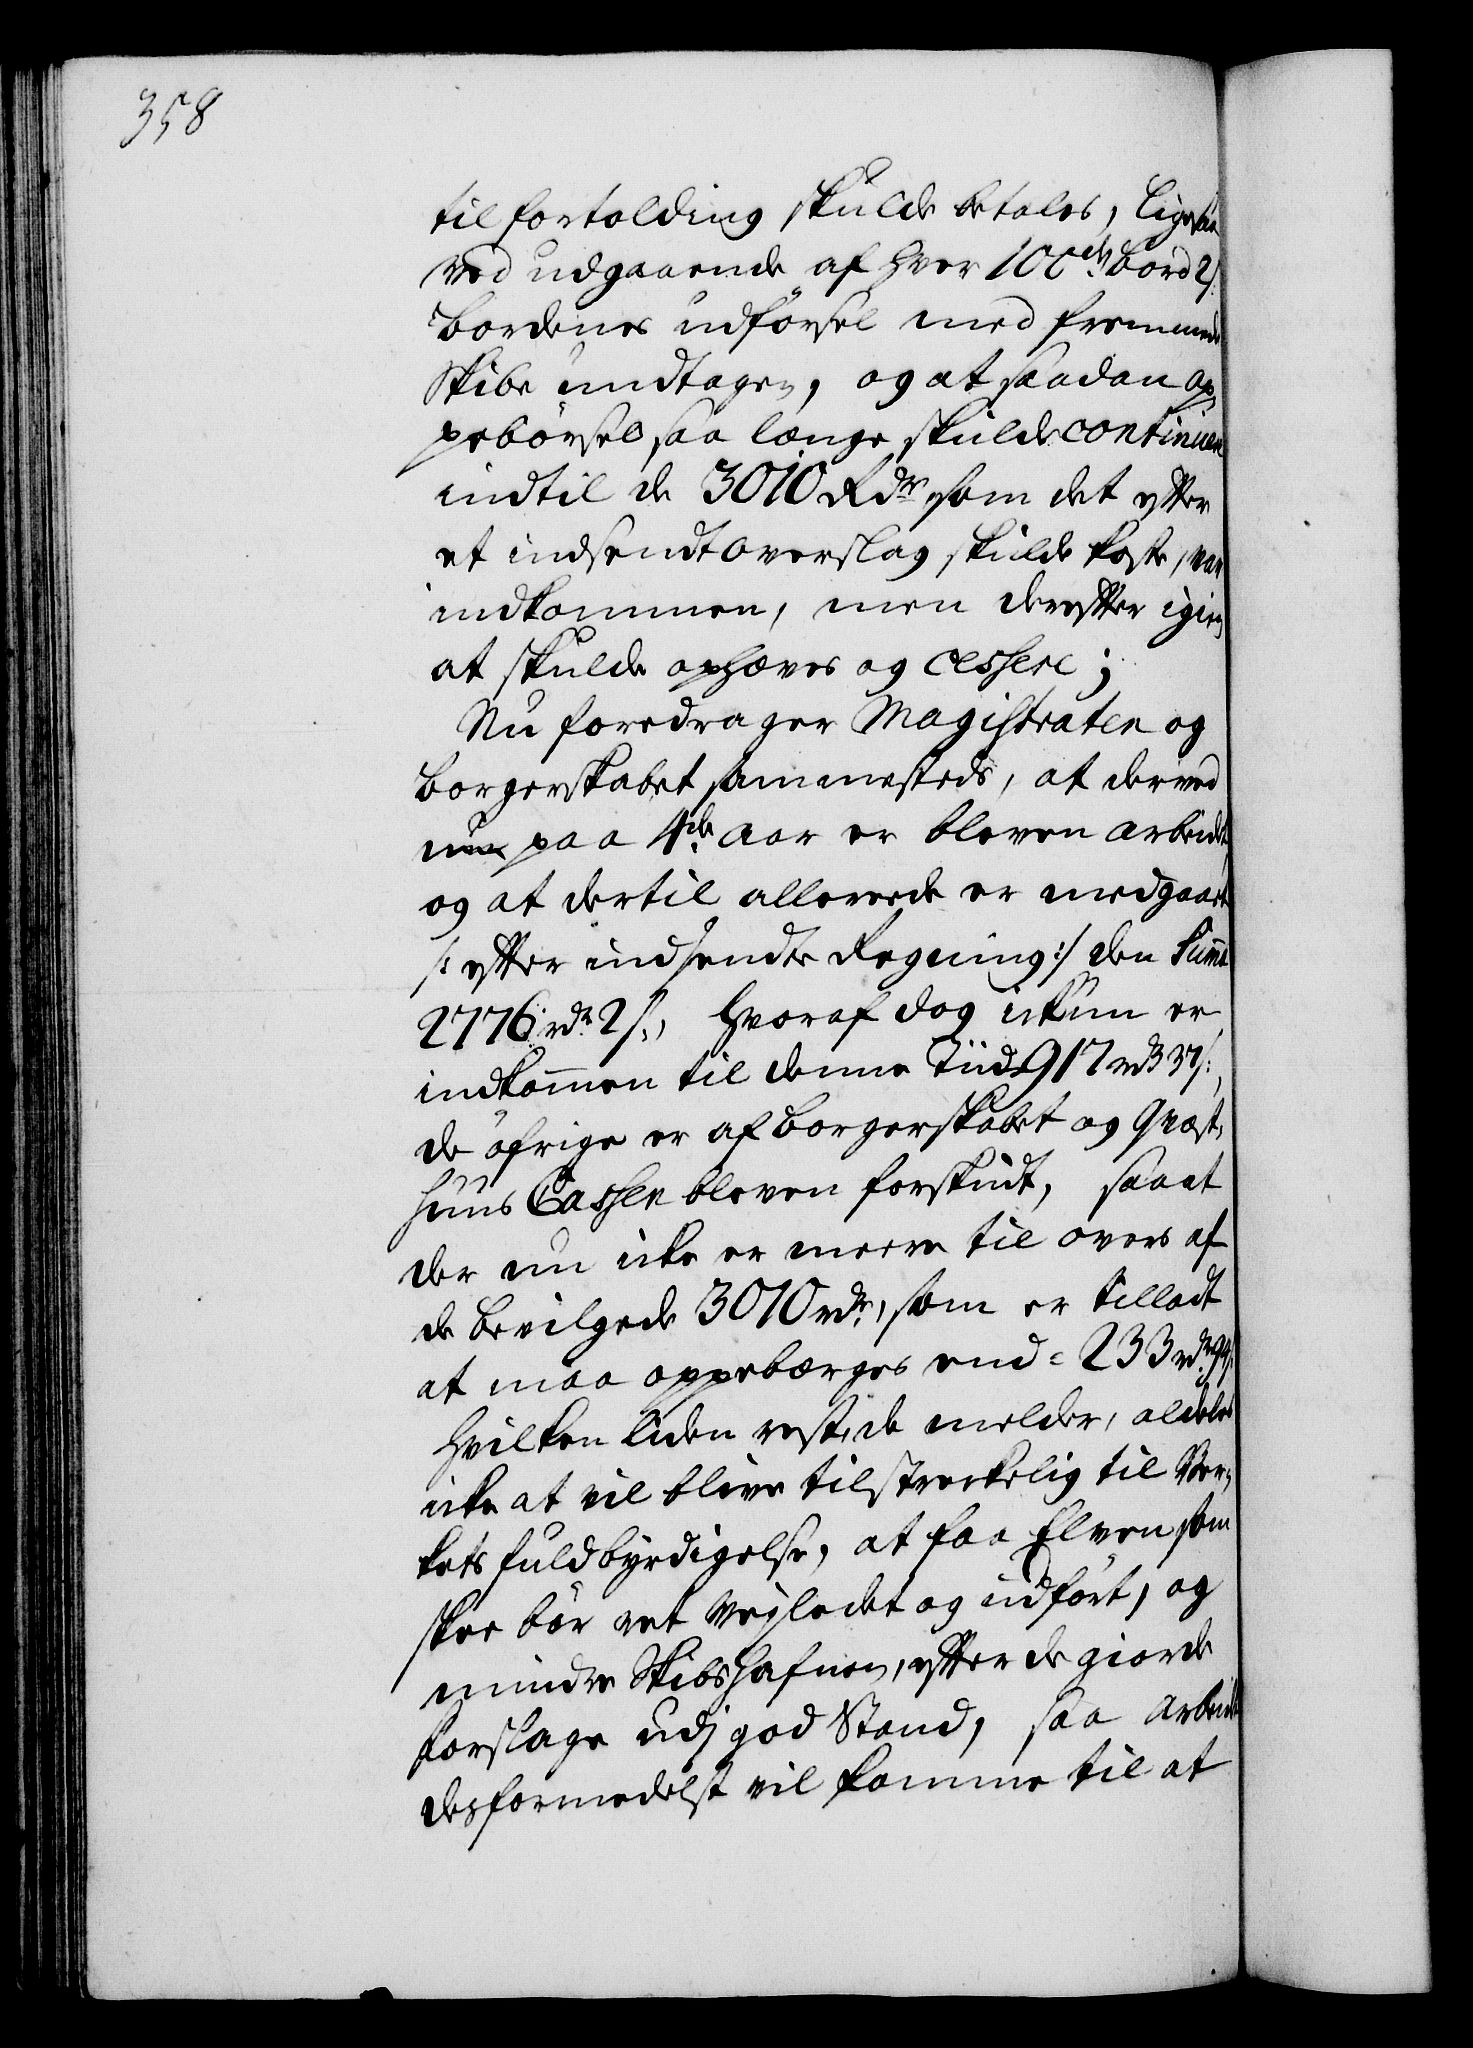 358
til fortolding skulde betales, ligesaa
ved udgaaende af hver 100de bord 2 s:
bordenes udførsel med fremmede
Skibe undtagen, og at saadan op-
pebørsel saa længe skulde continuere
indtil de 3010 Rdr som det efter
et indsendt overslag skulde koste, var
indkommen, men derefter igien
at skulde ophæves og cessere;
Nu foredrager Magistraten og
borgerskabet sammesteds, at derved
nu paa 4de aar er bleven arbeidet,
og at dertil allereede er medgaaet
/: efter indsendte Regning :/ den Summa
2776 rdr 2 s:, hvoraf dog ickun er
indkommen til denne Tiid 917 rd 37 s:,
de øfrige er af borgerskabet og Qvæst-
huus Cassen bleven forskudt, saa at
der nu icke er meere til overs af
de bevilgede 3010 rdr, som er tilladt
at maa oppebærges end = 233 rdr 94 s:
hvilken liden rest, de melder, aldeles
icke at vil blive tilstreckelig til Ver-
kets fuldbyrdigelse, at faa Elven som
skee bør ret Veyledet og udført, og
mindre Skibshafnen, efter de giorde
forslage udj god Stand, saa arbeidet
desformedelst vil komme til at